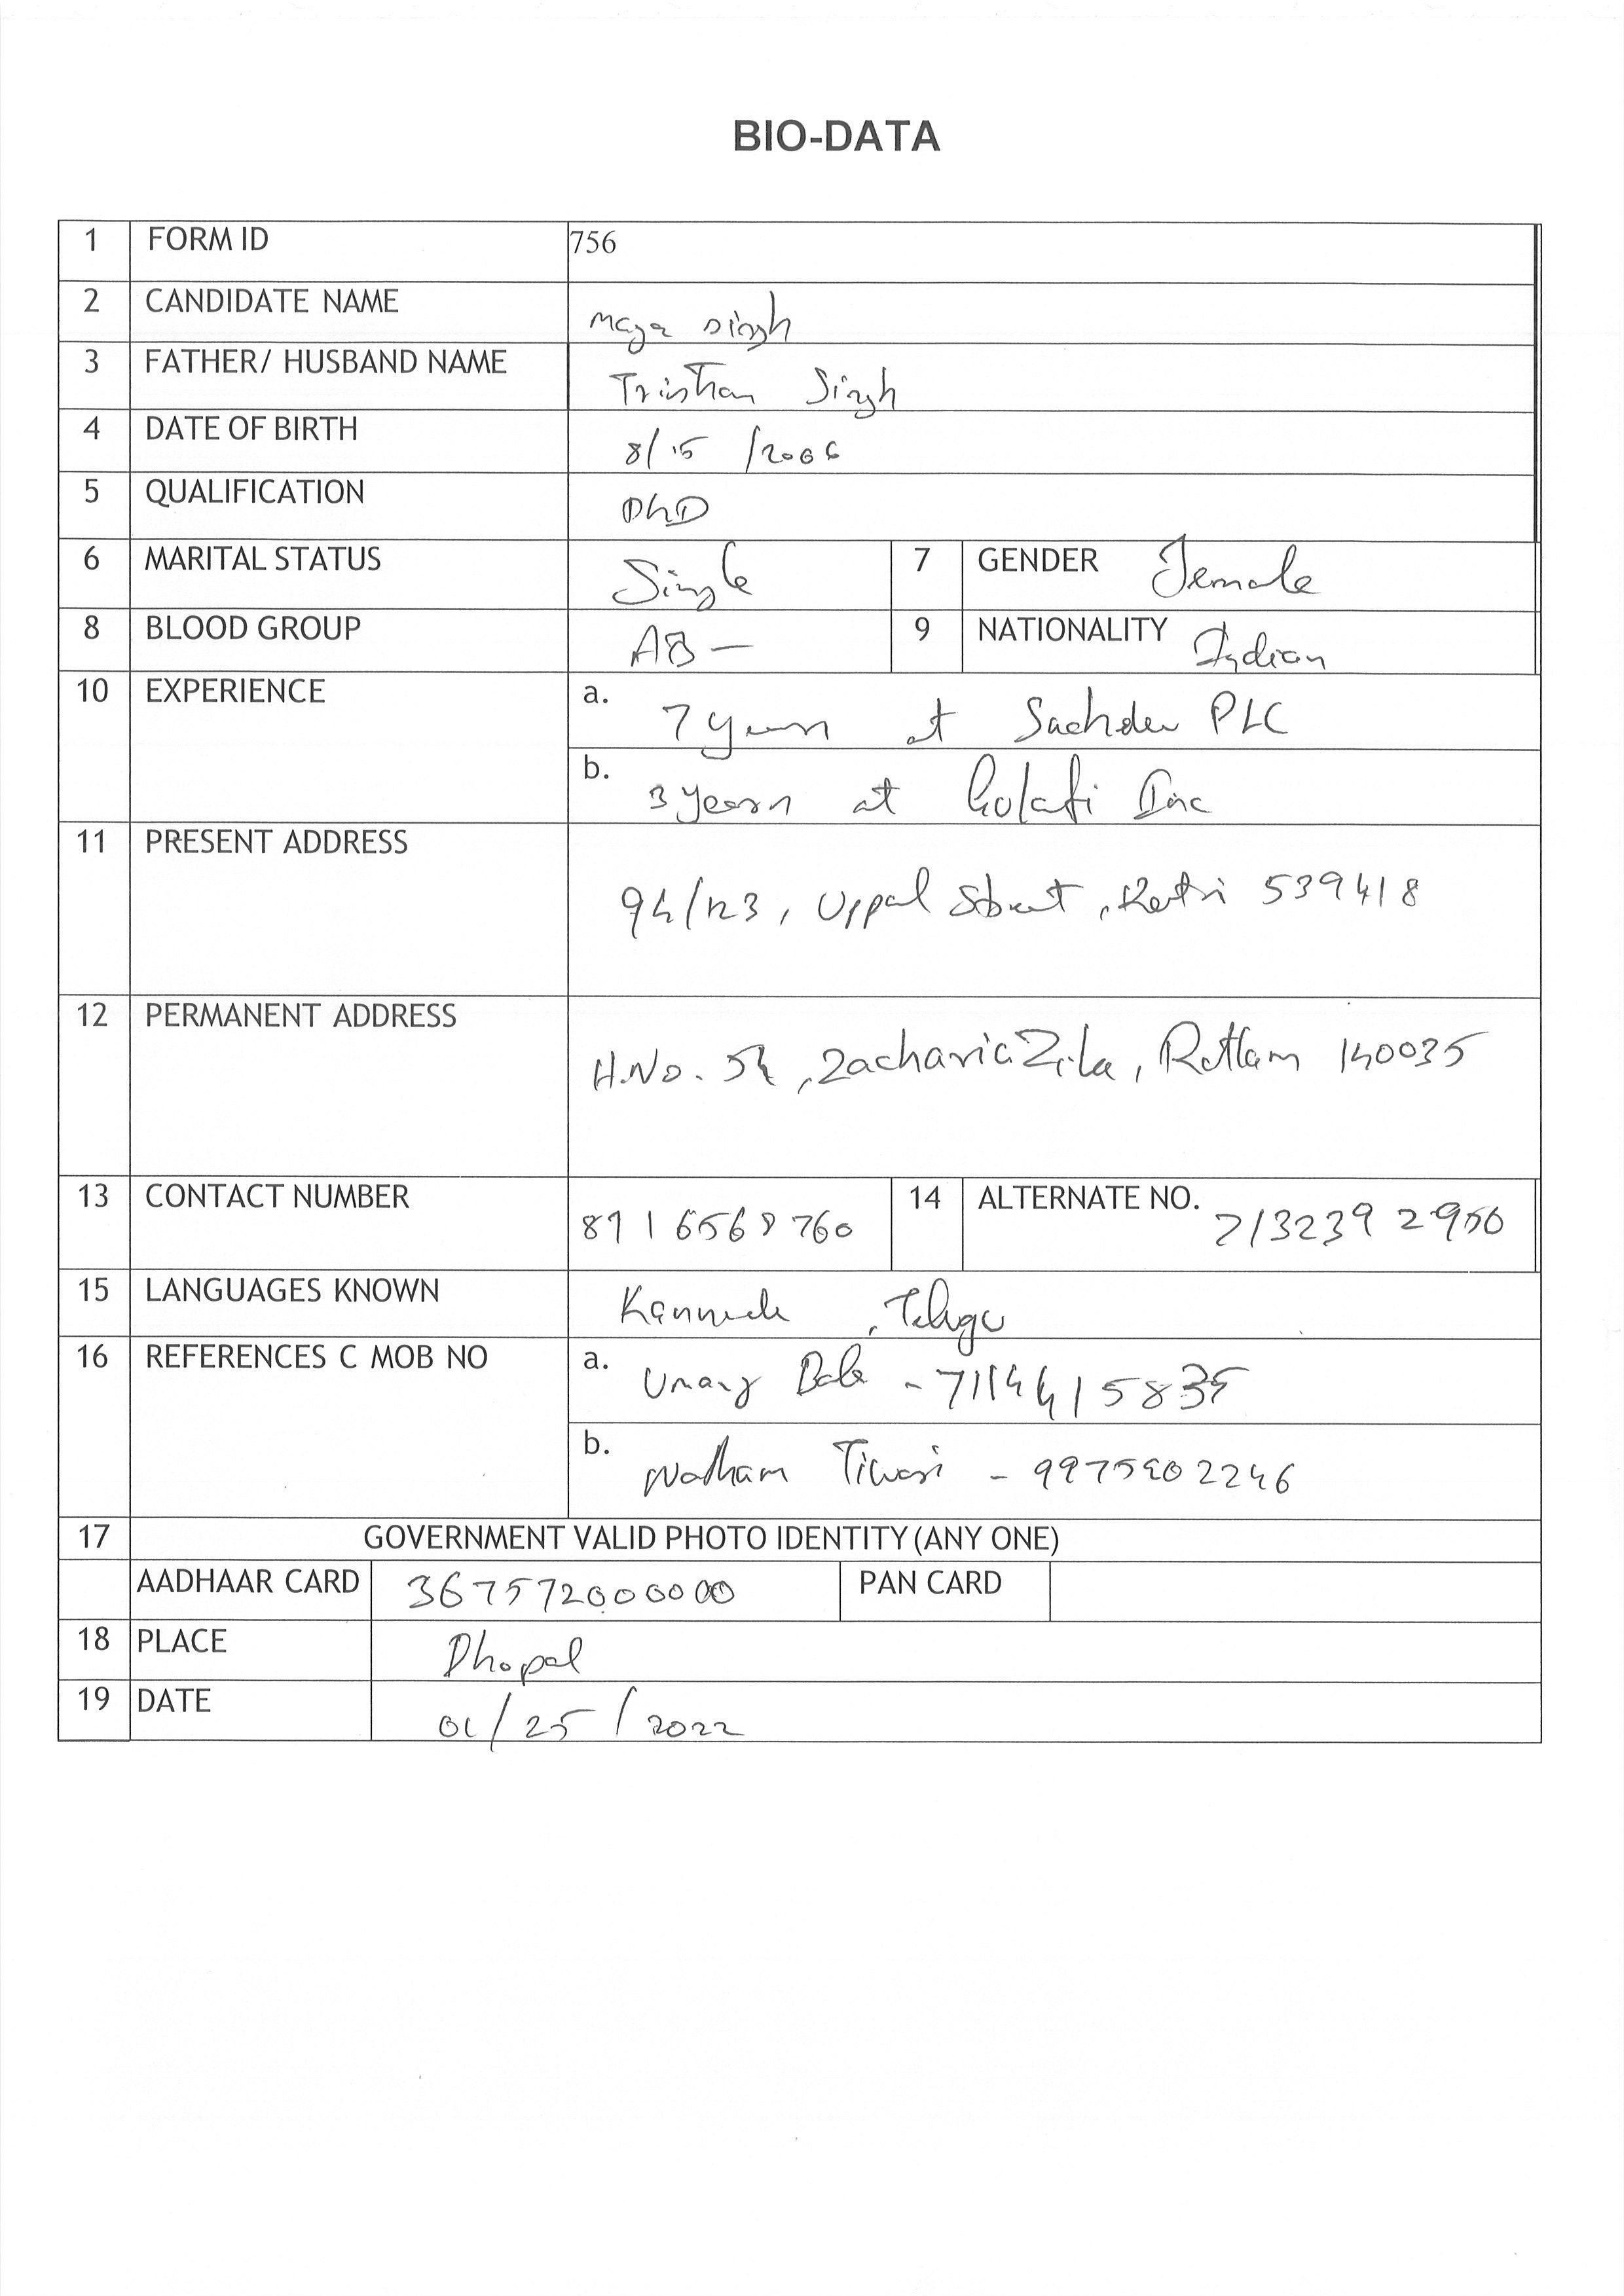 BIO-DATA
1 FORM ID 756
2 CANDIDATE NAME Maya Singh
3 FATHER/ HUSBAND NAME Trishan Singh
4 DATE OF BIRTH 8/15/2006
5 QUALIFICATION PhD
6 MARITAL STATUS Single 7 GENDER Female
8 BLOOD GROUP AB- 9 NATIONALITY Indian
10 EXPERIENCE a. 7 years at Sachdev PLC
b. 3 years at Inc
11 PRESENT ADDRESS
94/123, Uppal Street, 539418
12 PERMANENT ADDRESS
H.No. 54, Zacharia Zila, Ratlam 140035
13 CONTACT NUMBER 8916568760 14 ALTERNATE NO. 7132392950
15 LANGUAGES KNOWN Kannada, Telugu
16 REFERENCES C MOB NO a. Umang - 7114415835
b. Tiwari - 9975902246
17 GOVERNMENT VALID PHOTO IDENTITY (ANY ONE)
AADHAAR CARD 367572000000 PAN CARD
18 PLACE Bhopal
19 DATE 01/25/2022